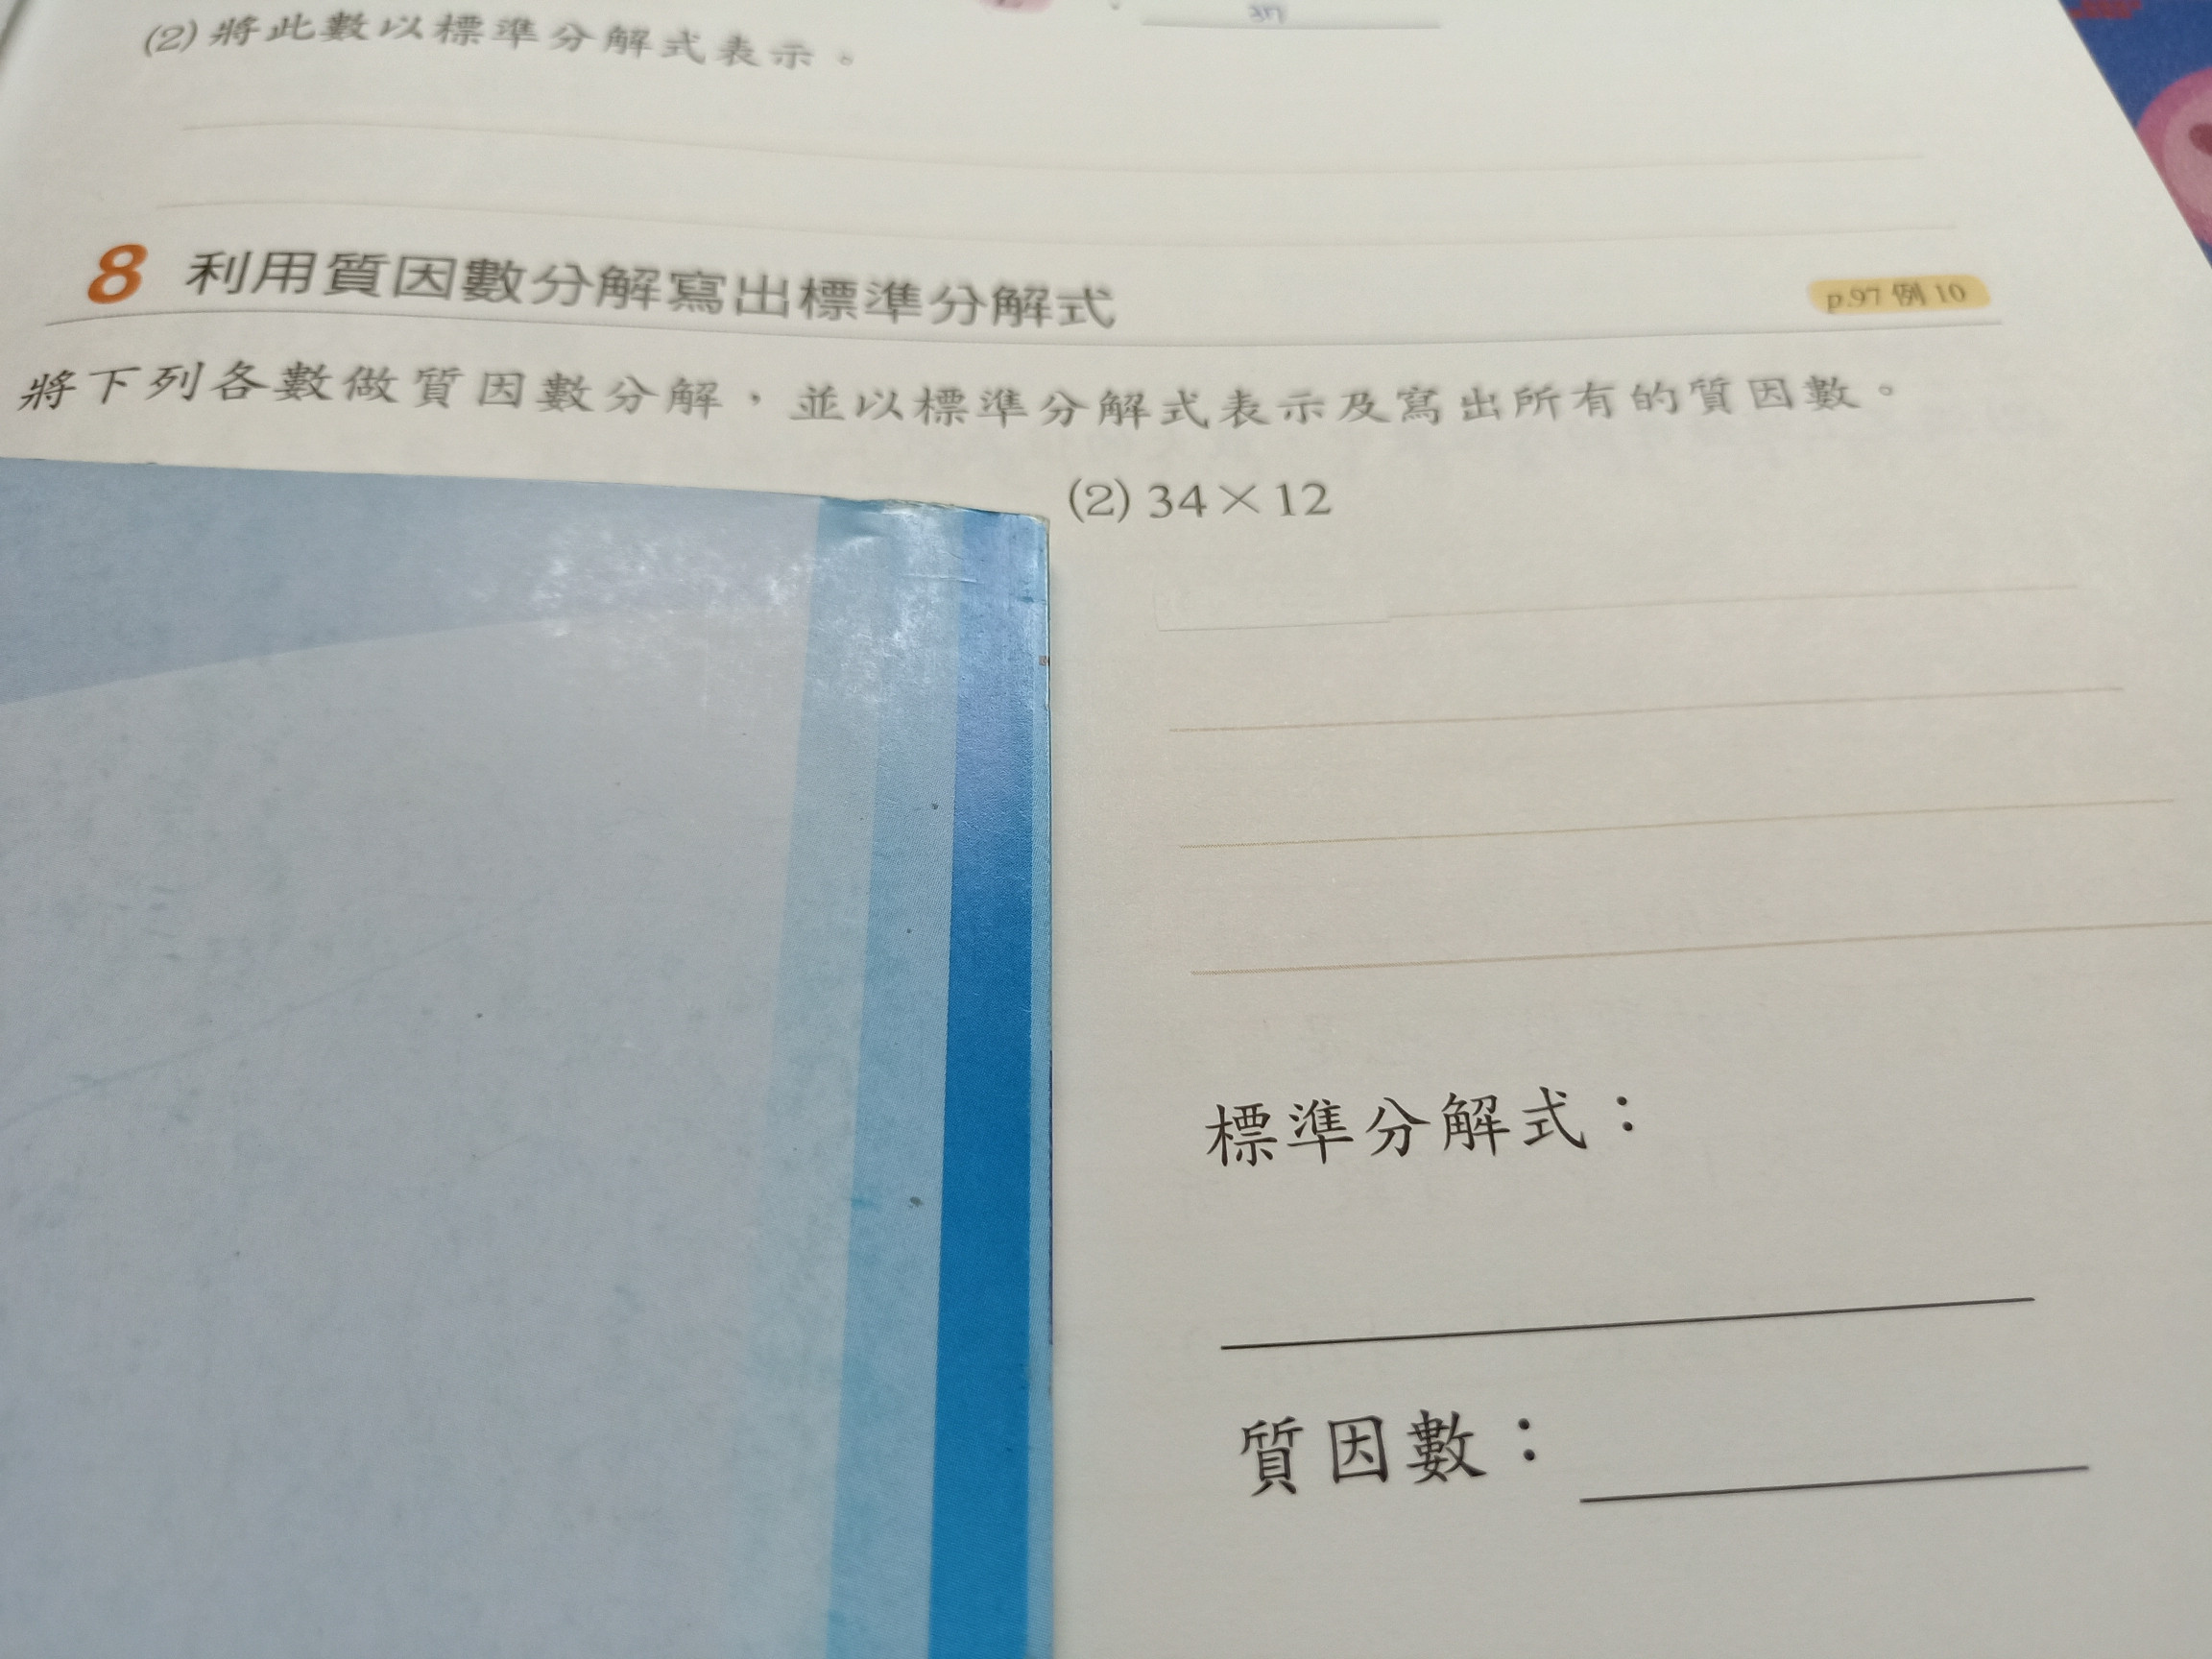 (2) 將此數以標準分解式表示。
8 利用質因數分解寫出標準分解式
p.97 例 10
將下列各數做質因數分解，並以標準分解式表示及寫出所有的質因數。
(2) 34×12
標準分解式：
質因數：